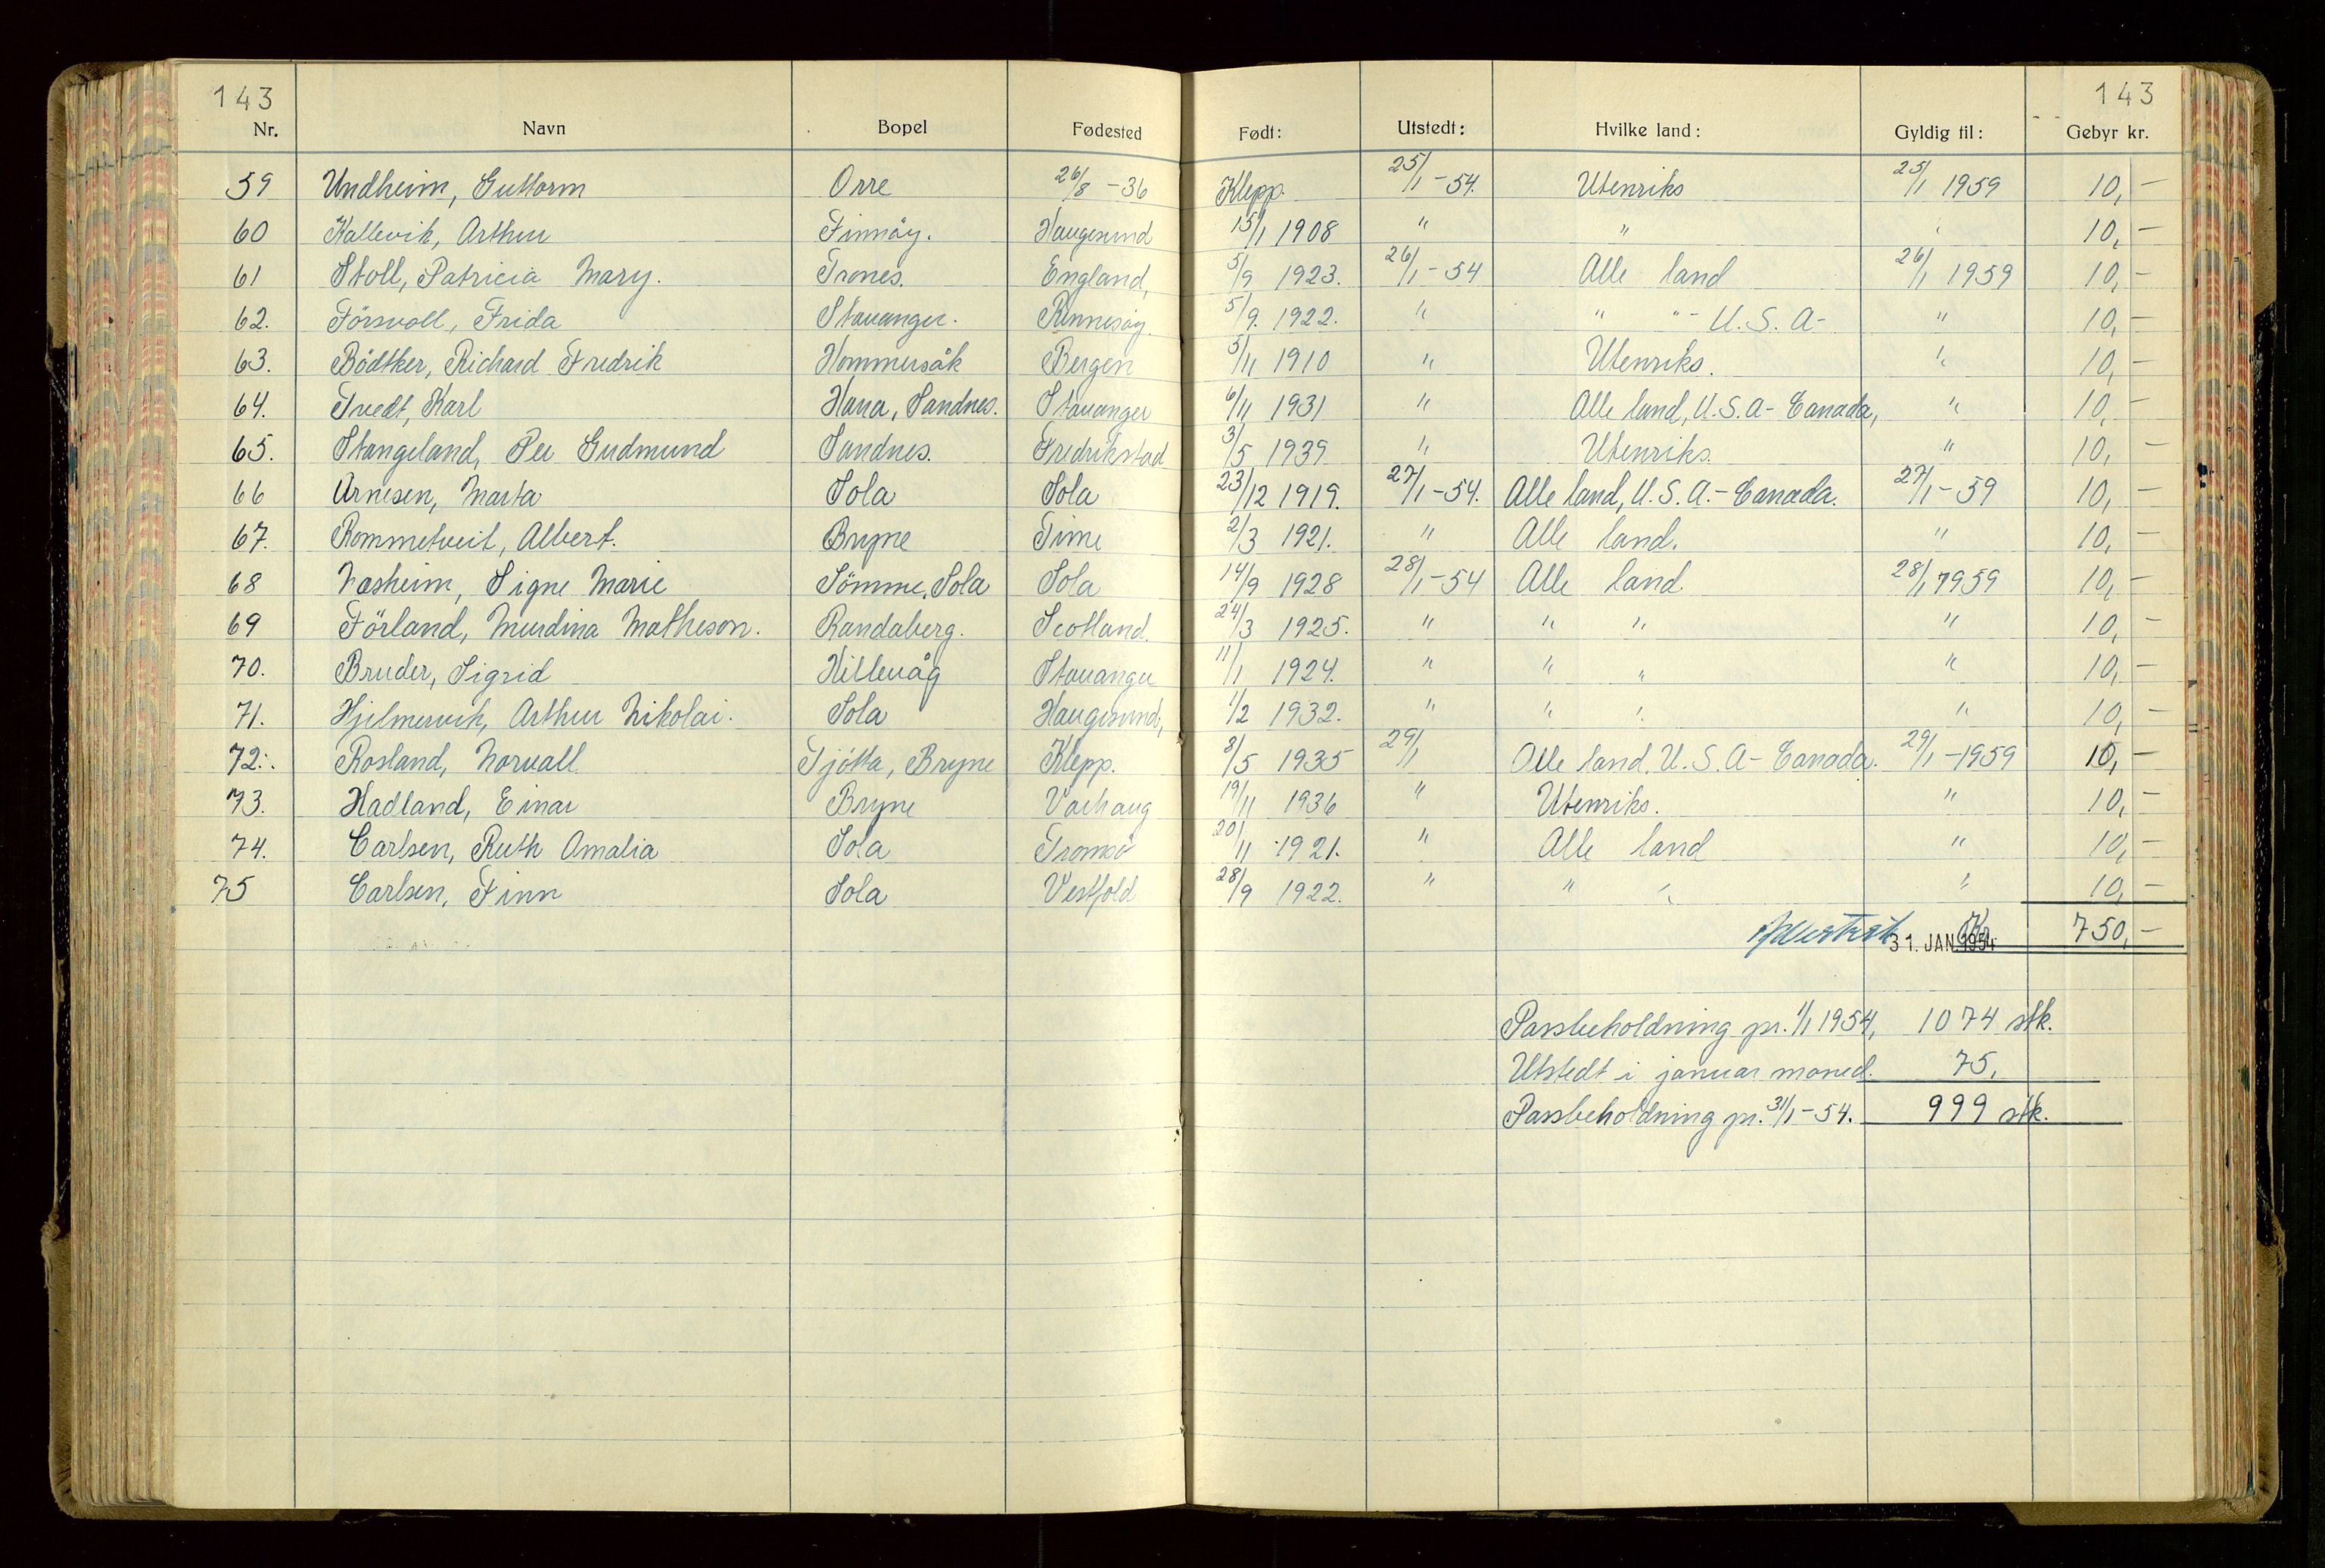 143 143
Nr. Navn Bopel Fødested Født: Utstedt: Hvilke land: Gyldig til: Gebyr kr.
59 Undheim, Guttorm Orre 26/8 - 36 Klepp. 25/1 - 54. Utenriks 25/1 1959 10,-
60 Kallevik, Arthur Finnöy. Haugesund 15/1 1908 " " " 10,-
61 Stoll, Patricia Mary. Trones. England, 5/9 1923. 26/1 - 54 Alle land 26/1 1959 10,-
62. Försvoll, Frida Stavanger. Rennesöy. 5/9. 1922. " " " - U.S.A- " 10,-
63. Bödtker, Richard Fredrik Hommersåk Bergen 5/11 1910 " Utenriks. " 10,-
64. Tvedt, Karl Hana, Sandnes. Stavanger 6/11 1931 " Alle land, U.S.A- Canada, " 10,-
65. Stangeland, Per Gudmund Sandnes. Fredrikstad 3/5 1939 " Utenriks. " 10,-
66 Arnesen, Marta Sola Sola 23/12 1919. 27/1 - 54. Alle land, U.S.A.- Canada. 27/1 - 59 10,-
67. Rommetveit, Albert. Bryne Time 2/3 1921. " Alle land. " 10,-
68 Næsheim, Signe Marie Sömme, Sola Sola 14/9 1928 28/1 - 54 Alle land. 28/1 1959 10,-
69 Förland, Murdina Matheson. Randaberg. Scotland. 24/3 1925. " " " " 10,-
70. Bruder, Sigrid Hillevåg Stavanger 11/1 1924. " " " " 10,-
71. Hjelmervik, Arthur Nikolai. Sola Haugesund, 1/2 1932. " " " " 10,-
72. Rosland, Norvall Tjötta, Bryne Klepp. 8/5 1935 29/1 Alle land, U.S.A- Canada. 29/1 - 1959 10,-
73. Hadland, Einar Bryne Varhaug 19/11 1936 " Utenriks. " 10,-
74. Carlsen, Ruth Amalia Sola Tromsö 20/11 1921. " Alle land " 10,-
75 Carlsen, Finn Sola Vestfold 28/9 1922. " " " " 10,-
31. JAN. 1954 Kr. 750,-
Passbeholdning pr. 1/1 1954, 1074 stk.
Utstedt i januar måned. 75,
Passbeholdning pr. 31/1 - 54. 999 stk.